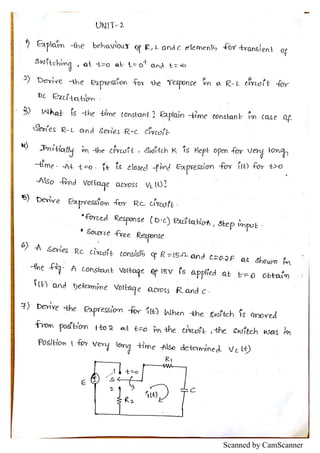 UNIT-2
1) Explain the behaviour of R, L and C elements for transient of
switching, at t=0 at t=0⁺ and t=∞
2) Derive the Expression for the response in a R-L circuit for
DC Excitation.
3) What is the time constant? Explain time constant in case of
Series R-L and Series R-C circuit.
4) Initially in the circuit, switch K is kept open for very long,
time. At t=0. it is closed find Expression for i(t) for t>0
Also find voltage across VL(t)!
5) Derive Expression for RC circuit.
*forced Response (D.C) Excitation, step input.
* source free Response
6) A series RC circuit consists of R=15Ω and C=0.2F as shown in
the fig. A constant voltage of 15V is applied at t=0 obtain
i(t) and Determine voltage across R and C.
7) Derive the Expression for i(t) When the switch is moved
from position 1 to 2 at t=0 in the circuit, the switch was in
Position 1 for very long time Also determined Vc(t)
R1
1 t=0
S
E
2
R2
i(t)
C
Scanned by CamScanner